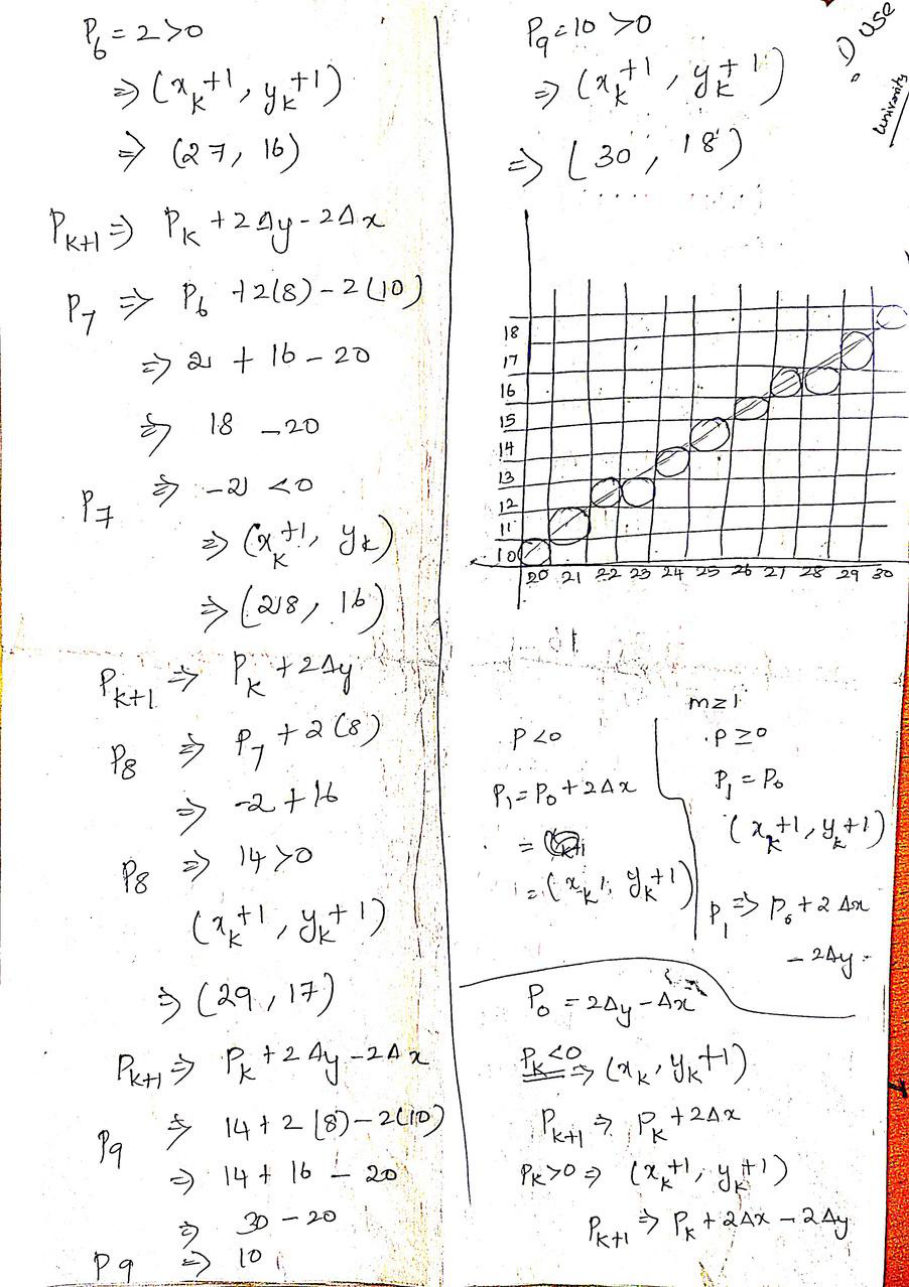 P₆ = 2 >0
⇒ (xₖ+1, yₖ+1)
⇒ (27, 16)
Pₖ₊₁ ⇒ Pₖ + 2Δy - 2Δx
P₇ ⇒ P₆ + 2(8) - 2(10)
⇒ 2 + 16 - 20
⇒ 18 - 20
P₇ ⇒ -2 <0
⇒ (xₖ+1, yₖ)
⇒ (28, 16)
Pₖ₊₁ ⇒ Pₖ + 2Δy
P₈ ⇒ P₇ + 2(8)
⇒ -2 + 16
P₈ ⇒ 14 >0
(xₖ+1, yₖ+1)
⇒ (29, 17)
Pₖ₊₁ ⇒ Pₖ + 2Δy - 2Δx
P₉ ⇒ 14 + 2(8) - 2(10)
⇒ 14 + 16 - 20
⇒ 30 - 20
P₉ ⇒ 10
P₉ = 10 >0
⇒ (xₖ+1, yₖ+1)
⇒ (30, 18)
use
university
18
17
16
15
14
13
12
11
10
20 21 22 23 24 25 26 27 28 29 30
m≥1
P<0
P₁ = P₀ + 2Δx
=
= (xₖ, yₖ+1)
P ≥ 0
P₁ = P₀
(xₖ+1, yₖ+1)
P₁ ⇒ P₀ + 2Δx
- 2Δy
P₀ = 2Δy - Δx
Pₖ<0 ⇒ (xₖ, yₖ+1)
Pₖ₊₁ ⇒ Pₖ + 2Δx
Pₖ>0 ⇒ (xₖ+1, yₖ+1)
Pₖ₊₁ ⇒ Pₖ + 2Δx - 2Δy